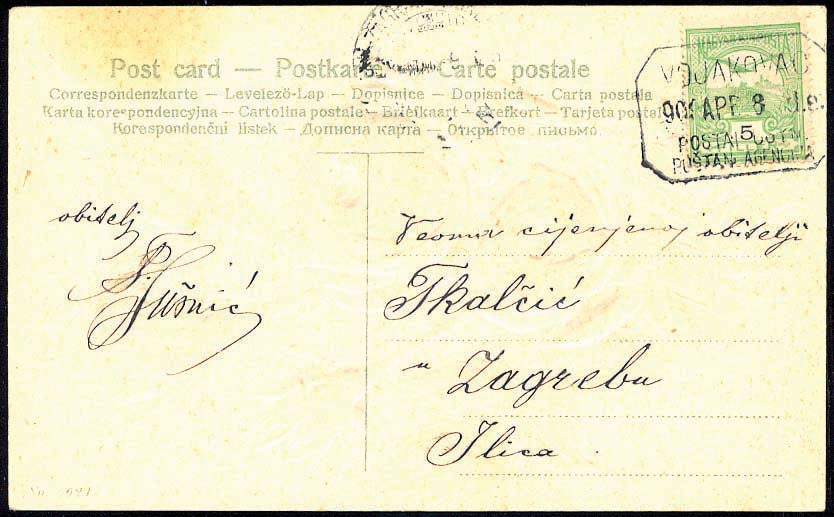 Post card — Postkarte — Carte postale
Correspondenzkarte – Levelezö-Lap – Dopisnice – Dopisnica – Carta postala
Karta korespondencyjna – Cartolina postale – Briefkaart – Brefkort – Tarjeta postal
Korespondenční lístek – Дописна карта – Открытое письмо.
MAGYAR KIR. POSTA
VOJAKOVAC
APR 8
5
obitelj
Veoma cijenjenoj obitelji
Tkalčić
u Zagrebu
Ilica